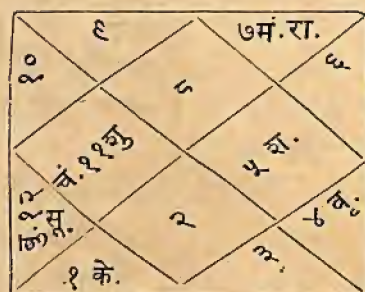 ९
७मं.रा.
१०
८
६
चं.११शु
५ श.
१२
बु.सू.
२
४ बृ.
३
१ के.